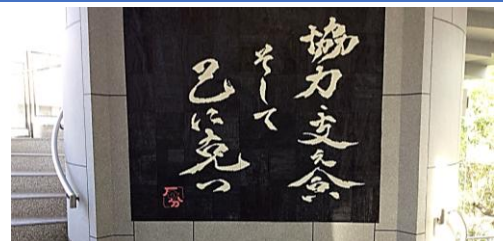 協力・支え合い
そして
己に克つ